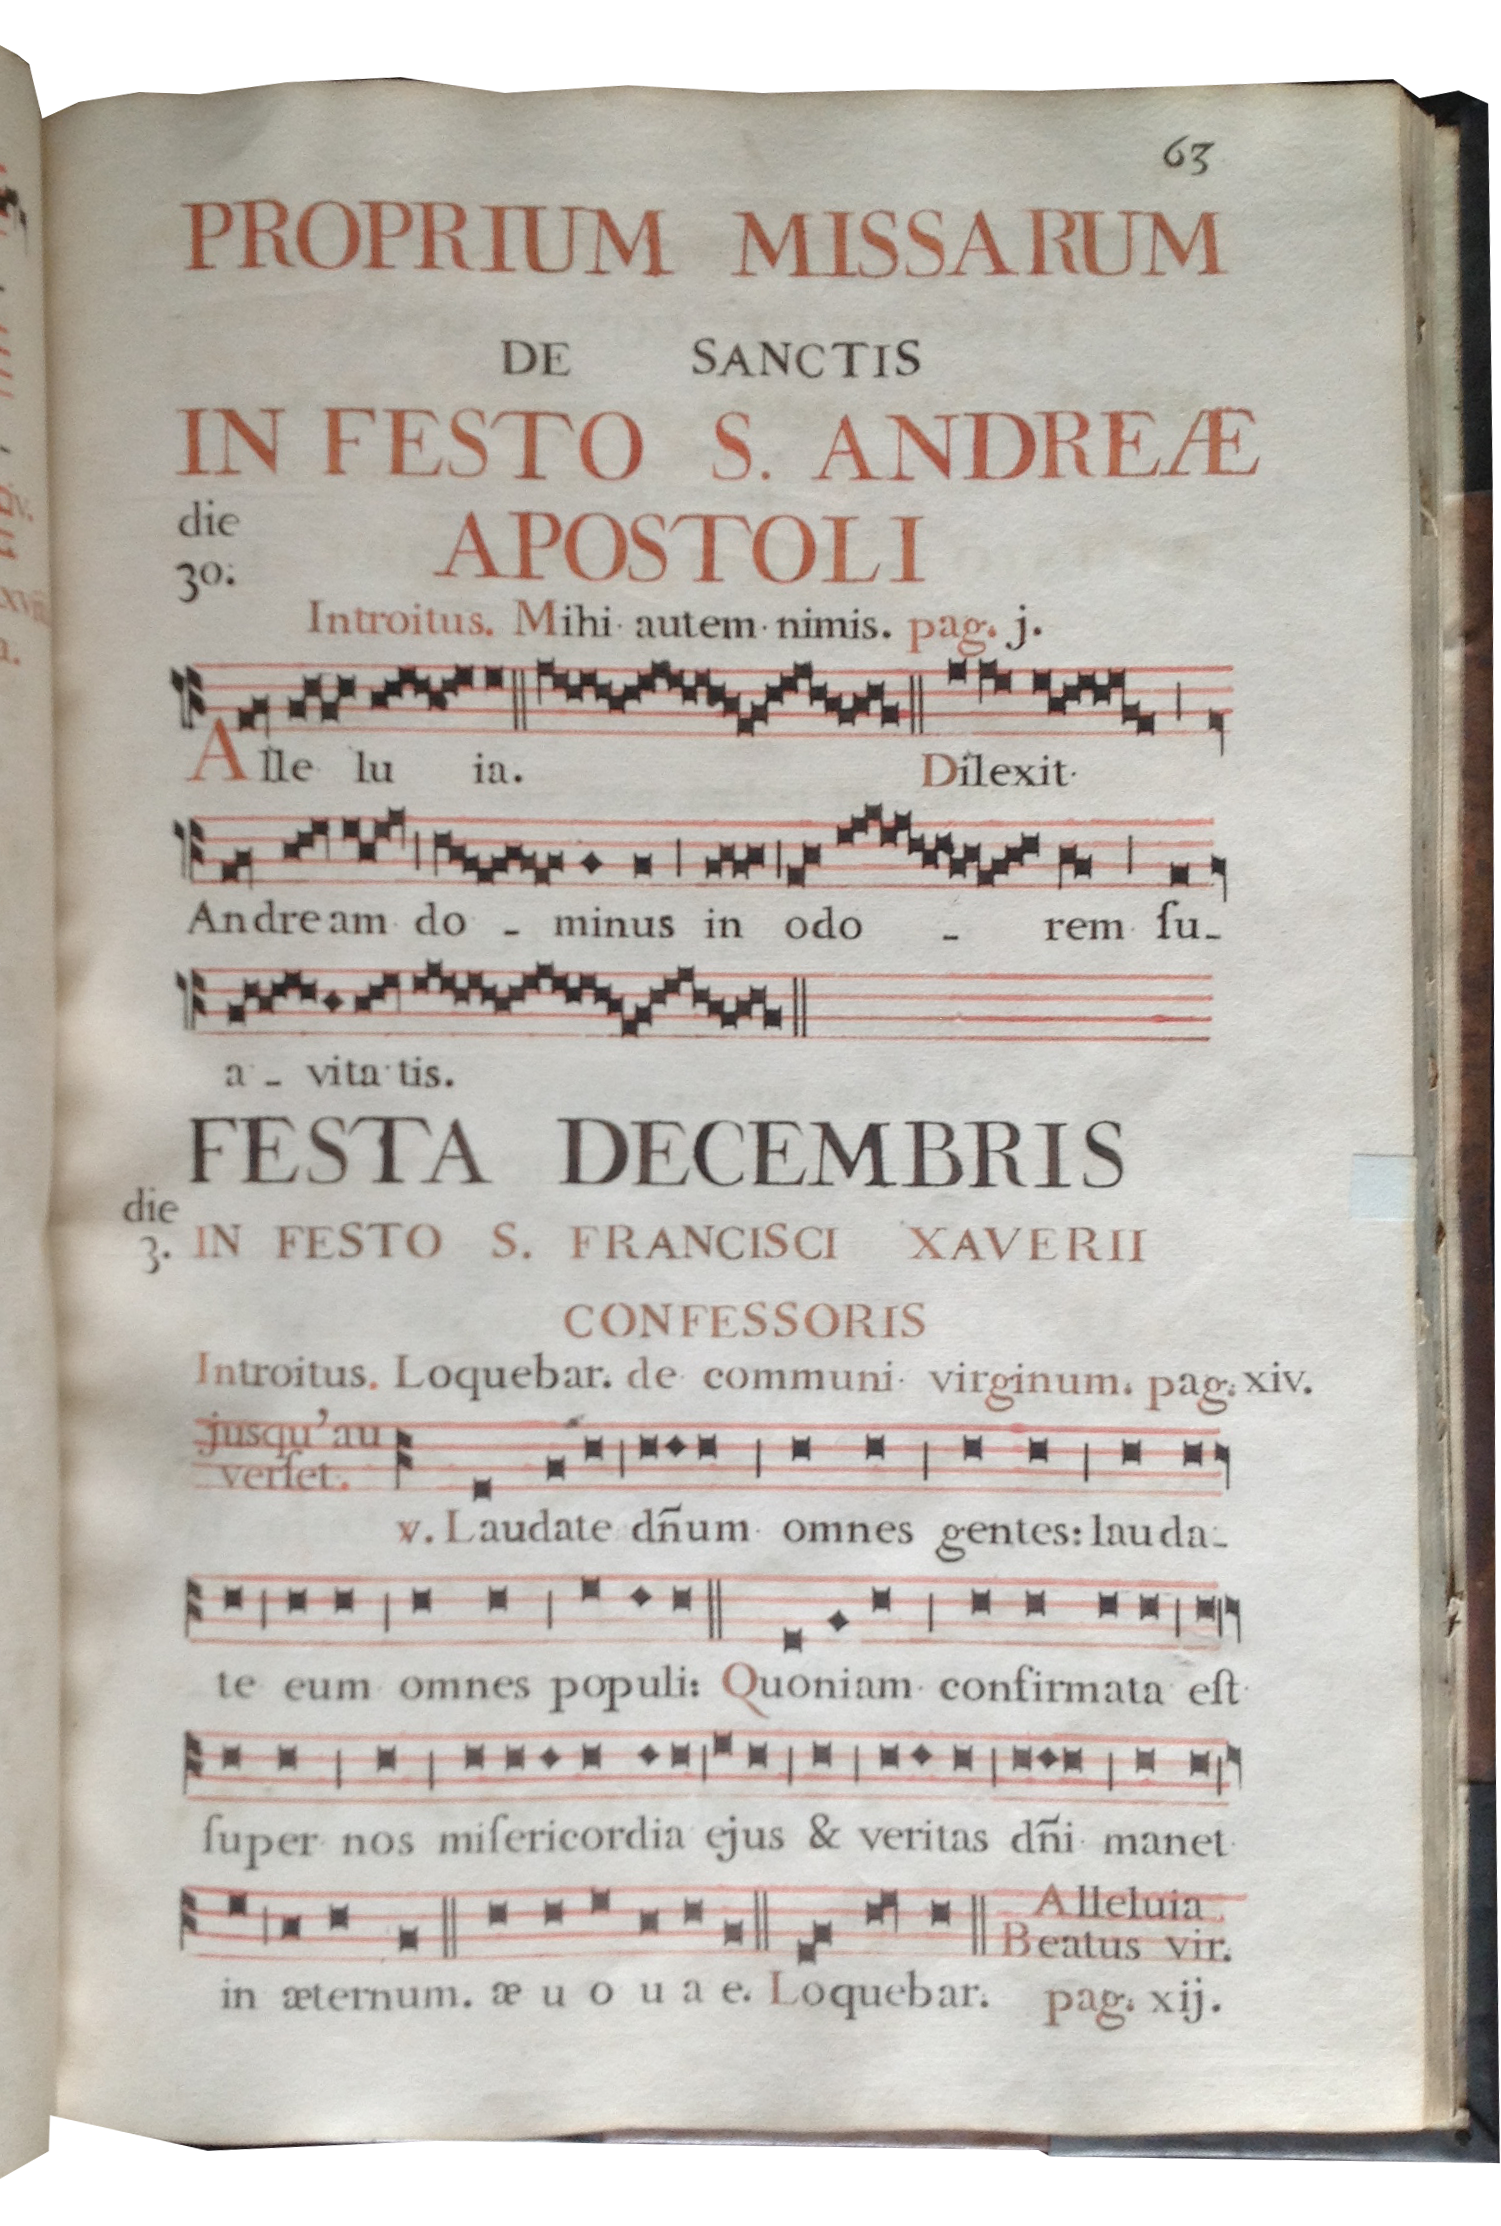 63
PROPRIUM MISSARUM
DE SANCTIS
IN FESTO S. ANDREÆ
die
30.
APOSTOLI
Introitus. Mihi autem nimis. pag. j.
Alle lu ia. Dilexit
Andream do - minus in odo - rem ſu-
a - vita tis.
FESTA DECEMBRIS
die
3. IN FESTO S. FRANCISCI XAVERII
CONFESSORIS
Introitus. Loquebar. de communi virginum. pag. xiv.
jusqu'au
verſet.
v. Laudate dñum omnes gentes: lauda-
te eum omnes populi: Quoniam confirmata eſt
ſuper nos miſericordia ejus & veritas dñi manet
Alleluia
Beatus vir.
in æternum. æ u o u a e. Loquebar. pag. xij.